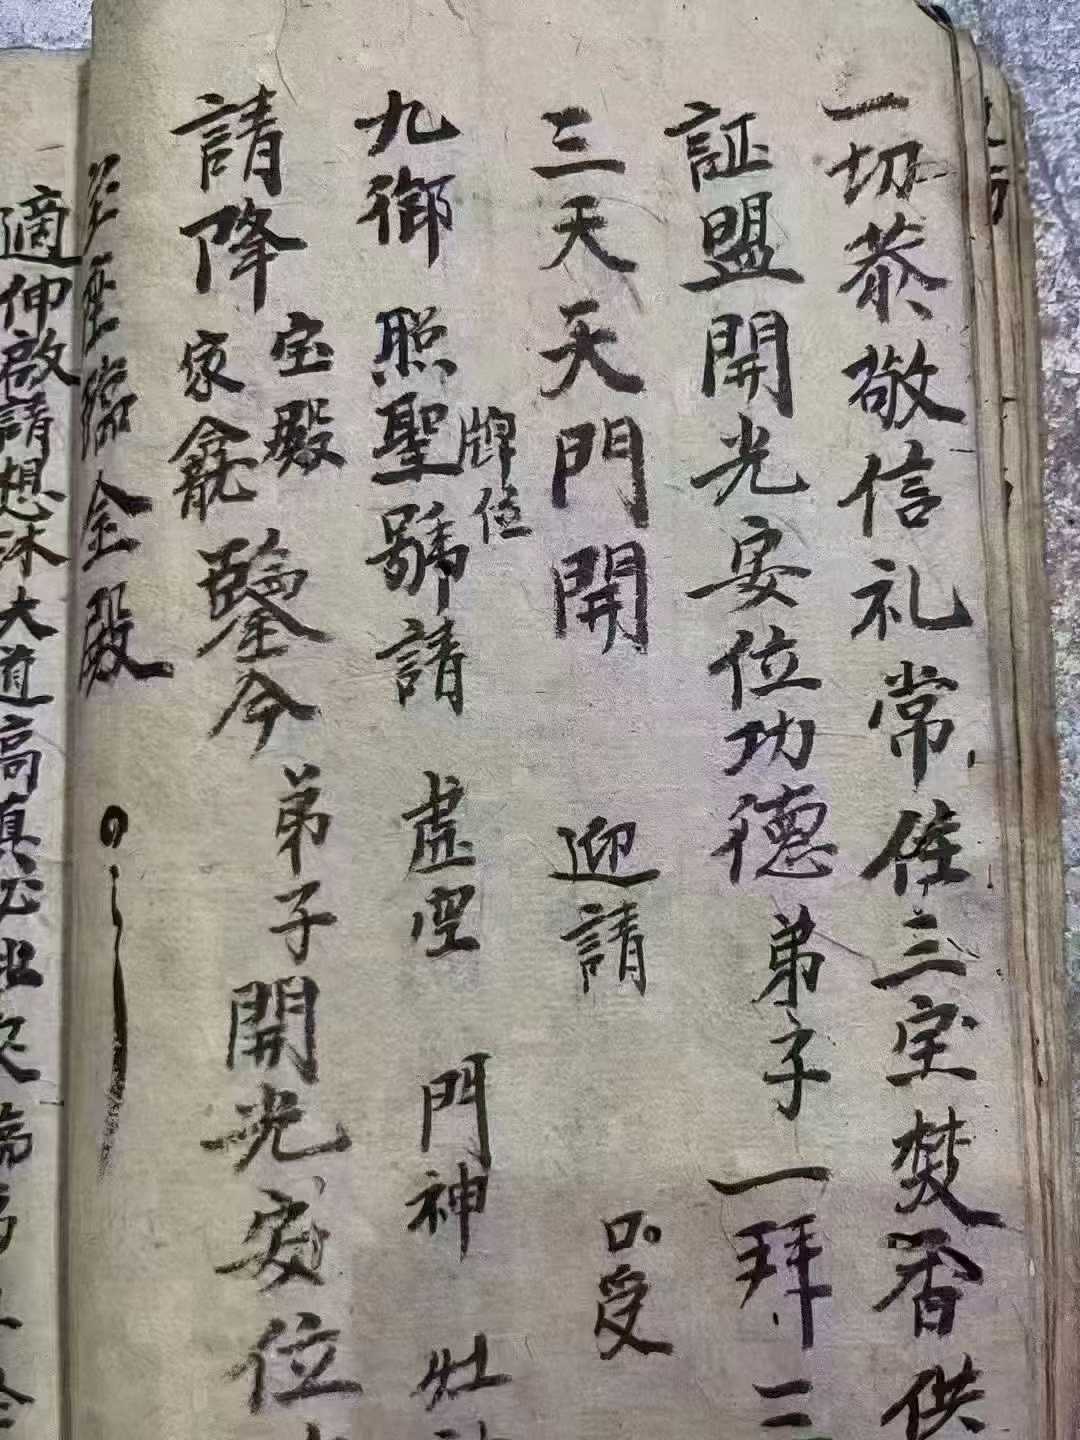 一切恭敬信礼常住三宝焚香供
証盟開光安位功德弟子一拜二
三天天門開 迎請 口受
九御 照聖號請 虚空 門神 灶
牌位
請降
宝殿
家龕
鑒今弟子開光安位
臨金殿
適伸啟請想沐大道高真必